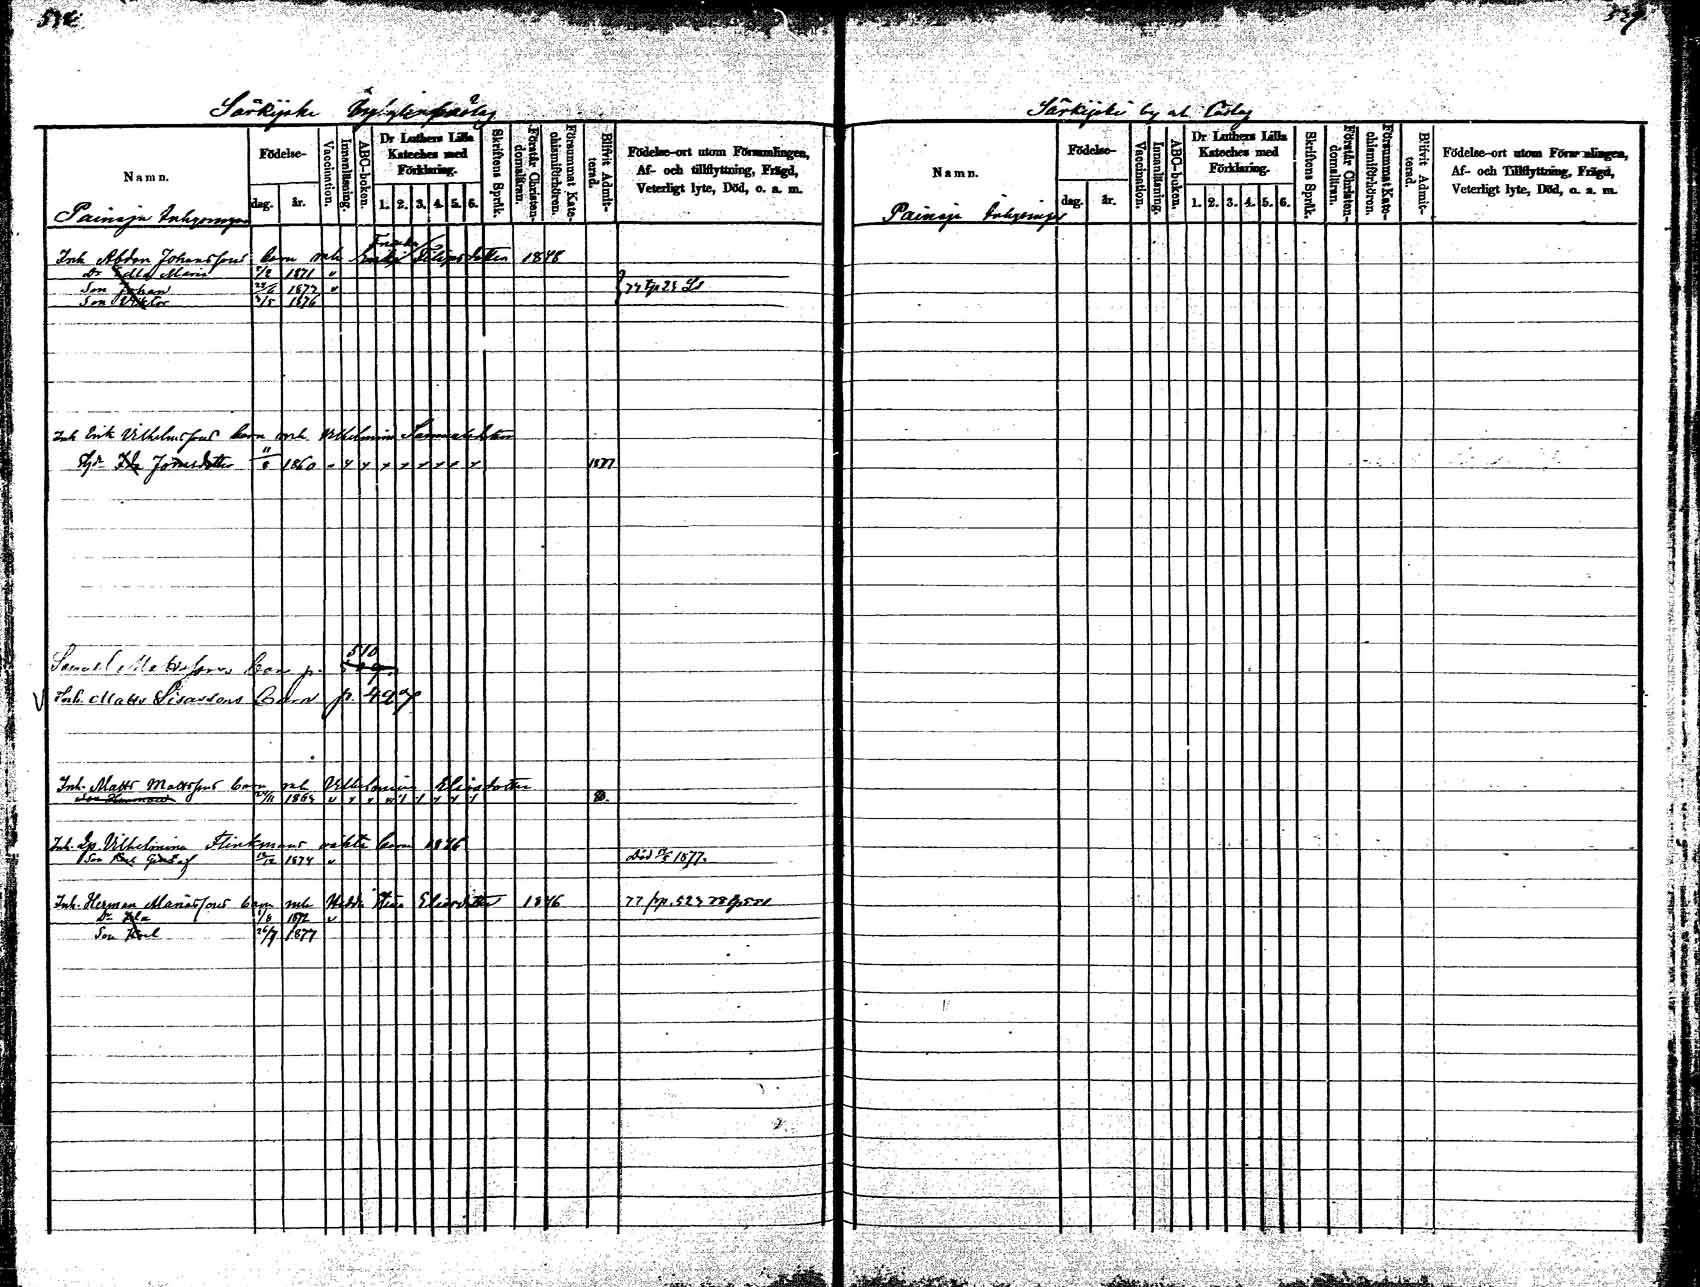 Särkijoki
Namn.
Födelse-
dag. år.
Vaccination.
Innanläsning.
ABC-boken.
Dr Luthers Lilla
Kateches med
Förklaring.
1. 2. 3. 4. 5. 6.
Skriftens Språk.
Förstår Christen-
domsläran.
Försummat Kate-
chismiförhören.
Blifvit Admit-
terad.
Födelse-ort utom Församlingen,
Af- och tillflyttning, Frägd,
Veterligt lyte, Död, o. a. m.
Painaja Inhysningar
Inh Abdon Johanssons barn mh Filipsdotter 1848
Dr Edla Maria 1871 v
Son Johan 1877 v
Son Viktor 4/5 1876
Inh Erik Vilhelmssons barn mh Vilhelmina Samuelsdotter
Ida Jonasdotter 11/8 1860 1877
Samuel Matssons barn p. 510
V Inh. Matts Sisarsons Barn p. 497
Inh. Matts Mattssons barn mh Vilhelmina Eliasdotter
1863
Inh. Vilhelmina Flinkmans oäkta barn 1846
Son Gustaf 1874 v Död 1877.
Inh. Herman Mariassons barn mh Hedda Stina Eliasdotter 1846 77 pp. 523
Dr Ida 1/8 1872 v
Son Karl 26/7 1877
529
Särkijoki by
Namn.
Födelse-
dag. år.
Vaccination.
Innanläsning.
ABC-boken.
Dr Luthers Lilla
Kateches med
Förklaring.
1. 2. 3. 4. 5. 6.
Skriftens Språk.
Förstår Christen-
domsläran.
Försummat Kate-
chismiförhören.
Blifvit Admit-
terad.
Födelse-ort utom Församlingen,
Af- och Tillflyttning, Frägd,
Veterligt lyte, Död, o. a. m.
Painaja Inhysingar